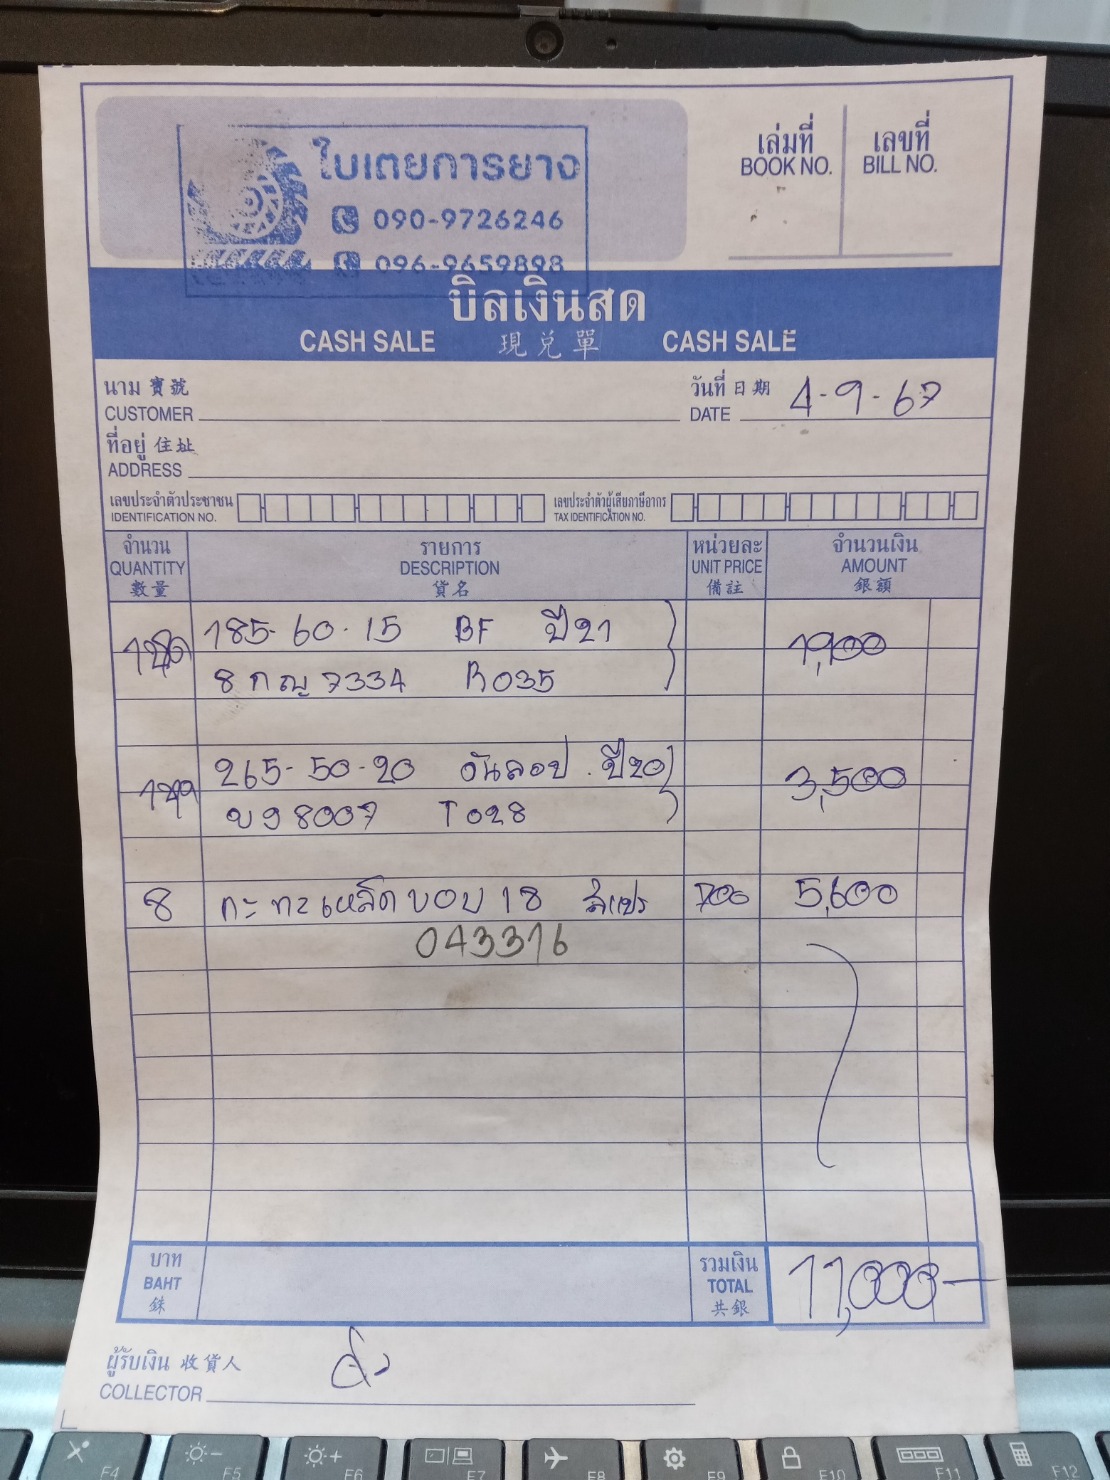 ใบเตยการยาง
090-9726246
096-9659898
เล่มที่ เลขที่
BOOK NO. BILL NO.
บิลเงินสด
CASH SALE 現兌單 CASH SALE
นาม 寶號 วันที่ 日期 4-9-67
CUSTOMER DATE
ที่อยู่ 住址
ADDRESS
เลขประจำตัวประชาชน เลขประจำตัวผู้เสียภาษีอากร
IDENTIFICATION NO. TAX IDENTIFICATION NO.
จำนวน รายการ หน่วยละ จำนวนเงิน
QUANTITY DESCRIPTION UNIT PRICE AMOUNT
數量 貨名 備註 銀額
185-60-15 BF ปี21 1,900
8 กญ 7334 R035
265-50-20 ดันลอป ปี20 3,500
บง 8007 T028
8 กะทะเหล็กขอบ 18 700 5,600
043316
บาท รวมเงิน
BAHT TOTAL 11,000-
銖 共銀
ผู้รับเงิน 收貨人
COLLECTOR
F4 F5 F6 F7 F8 F9 F10 F11 F12